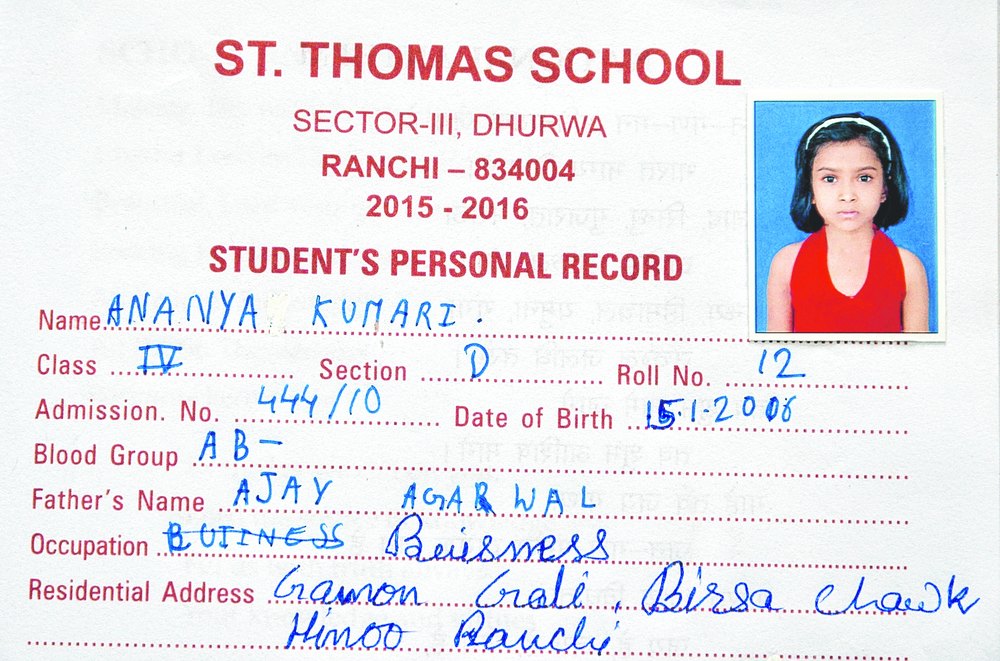 ST. THOMAS SCHOOL
SECTOR-III, DHURWA
RANCHI – 834004
2015 - 2016
STUDENT'S PERSONAL RECORD
Name ANANYA KUMARI.
Class IV Section D Roll No. 12
Admission. No. 444/10 Date of Birth 15.1.2006
Blood Group AB-
Father's Name AJAY AGARWAL
Occupation BUTINESS Beuisness
Residential Address Gamon Gali, Birsa Chawk
Hinoo Ranchi